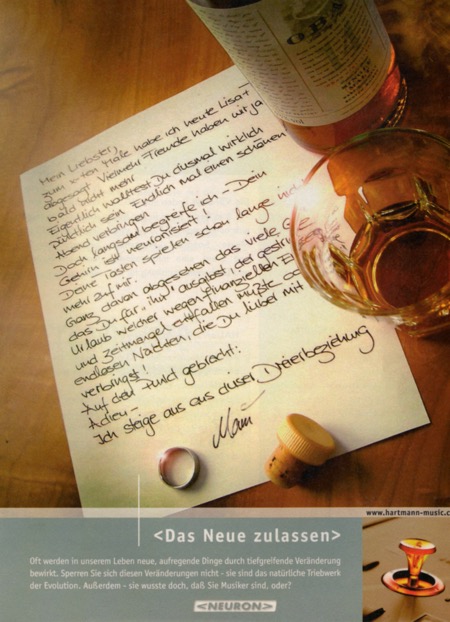 OBA
Mein Liebster,
zum x-ten Male habe ich heute Lisa +
abgesagt. Vielmehr Freunde haben wir ja
bald nicht mehr.
Eigentlich wolltest Du diesmal wirklich
pünktlich sein. Endlich mal einen schönen
Abend verbringen.
Doch langsam begreife ich - Dein
Gehirn ist neuronisiert!
Deine Tasten spielen schon lange
mehr auf mir.
Ganz davon abgesehen das viele
das Du für "ihn" ausgibst, der
Urlaub welcher wegen finanziellen
und Zeitmangel entfallen müßte
endlosen Nächten, die Du lieber mit
verbringst!
Auf den Punkt gebracht:
Adieu -
Ich steige aus aus dieser Dreierbeziehung
www.hartmann-music.c
<Das Neue zulassen>
Oft werden in unserem Leben neue, aufregende Dinge durch tiefgreifende Veränderung
bewirkt. Sperren Sie sich diesen Veränderungen nicht - sie sind das natürliche Triebwerk
der Evolution. Außerdem - sie wusste doch, daß Sie Musiker sind, oder?
<NEURON>